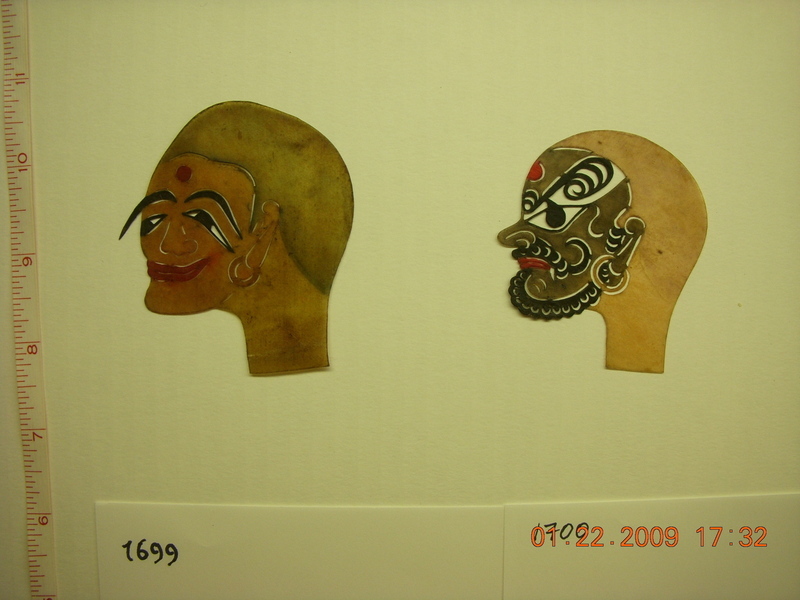 11
10
9
8
7
6
1699
1700
01.22.2009 17:32